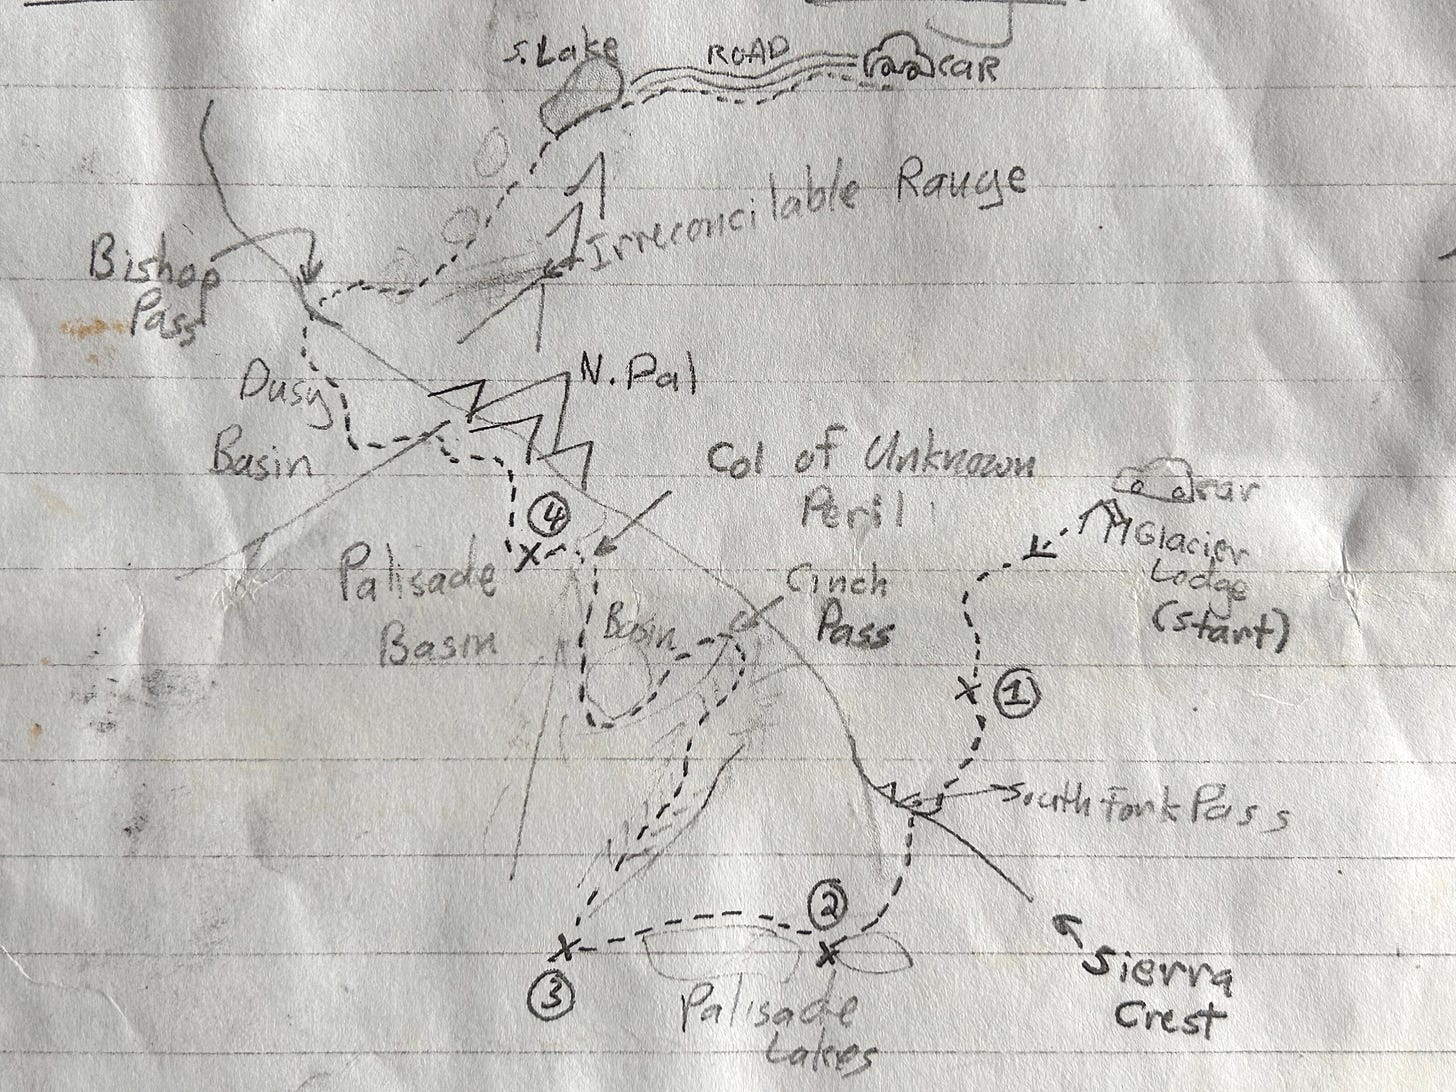 S. Lake
ROAD
CAR
Irreconcilable Range
Bishop
Pass
Dusy
Basin
N. Pal
Col of Unknown
Peril
car
Glacier
Lodge
(start)
4
Palisade
Basin
Cinch
Pass
Basin
1
South Fork Pass
2
3
Palisade
Lakes
Sierra
Crest